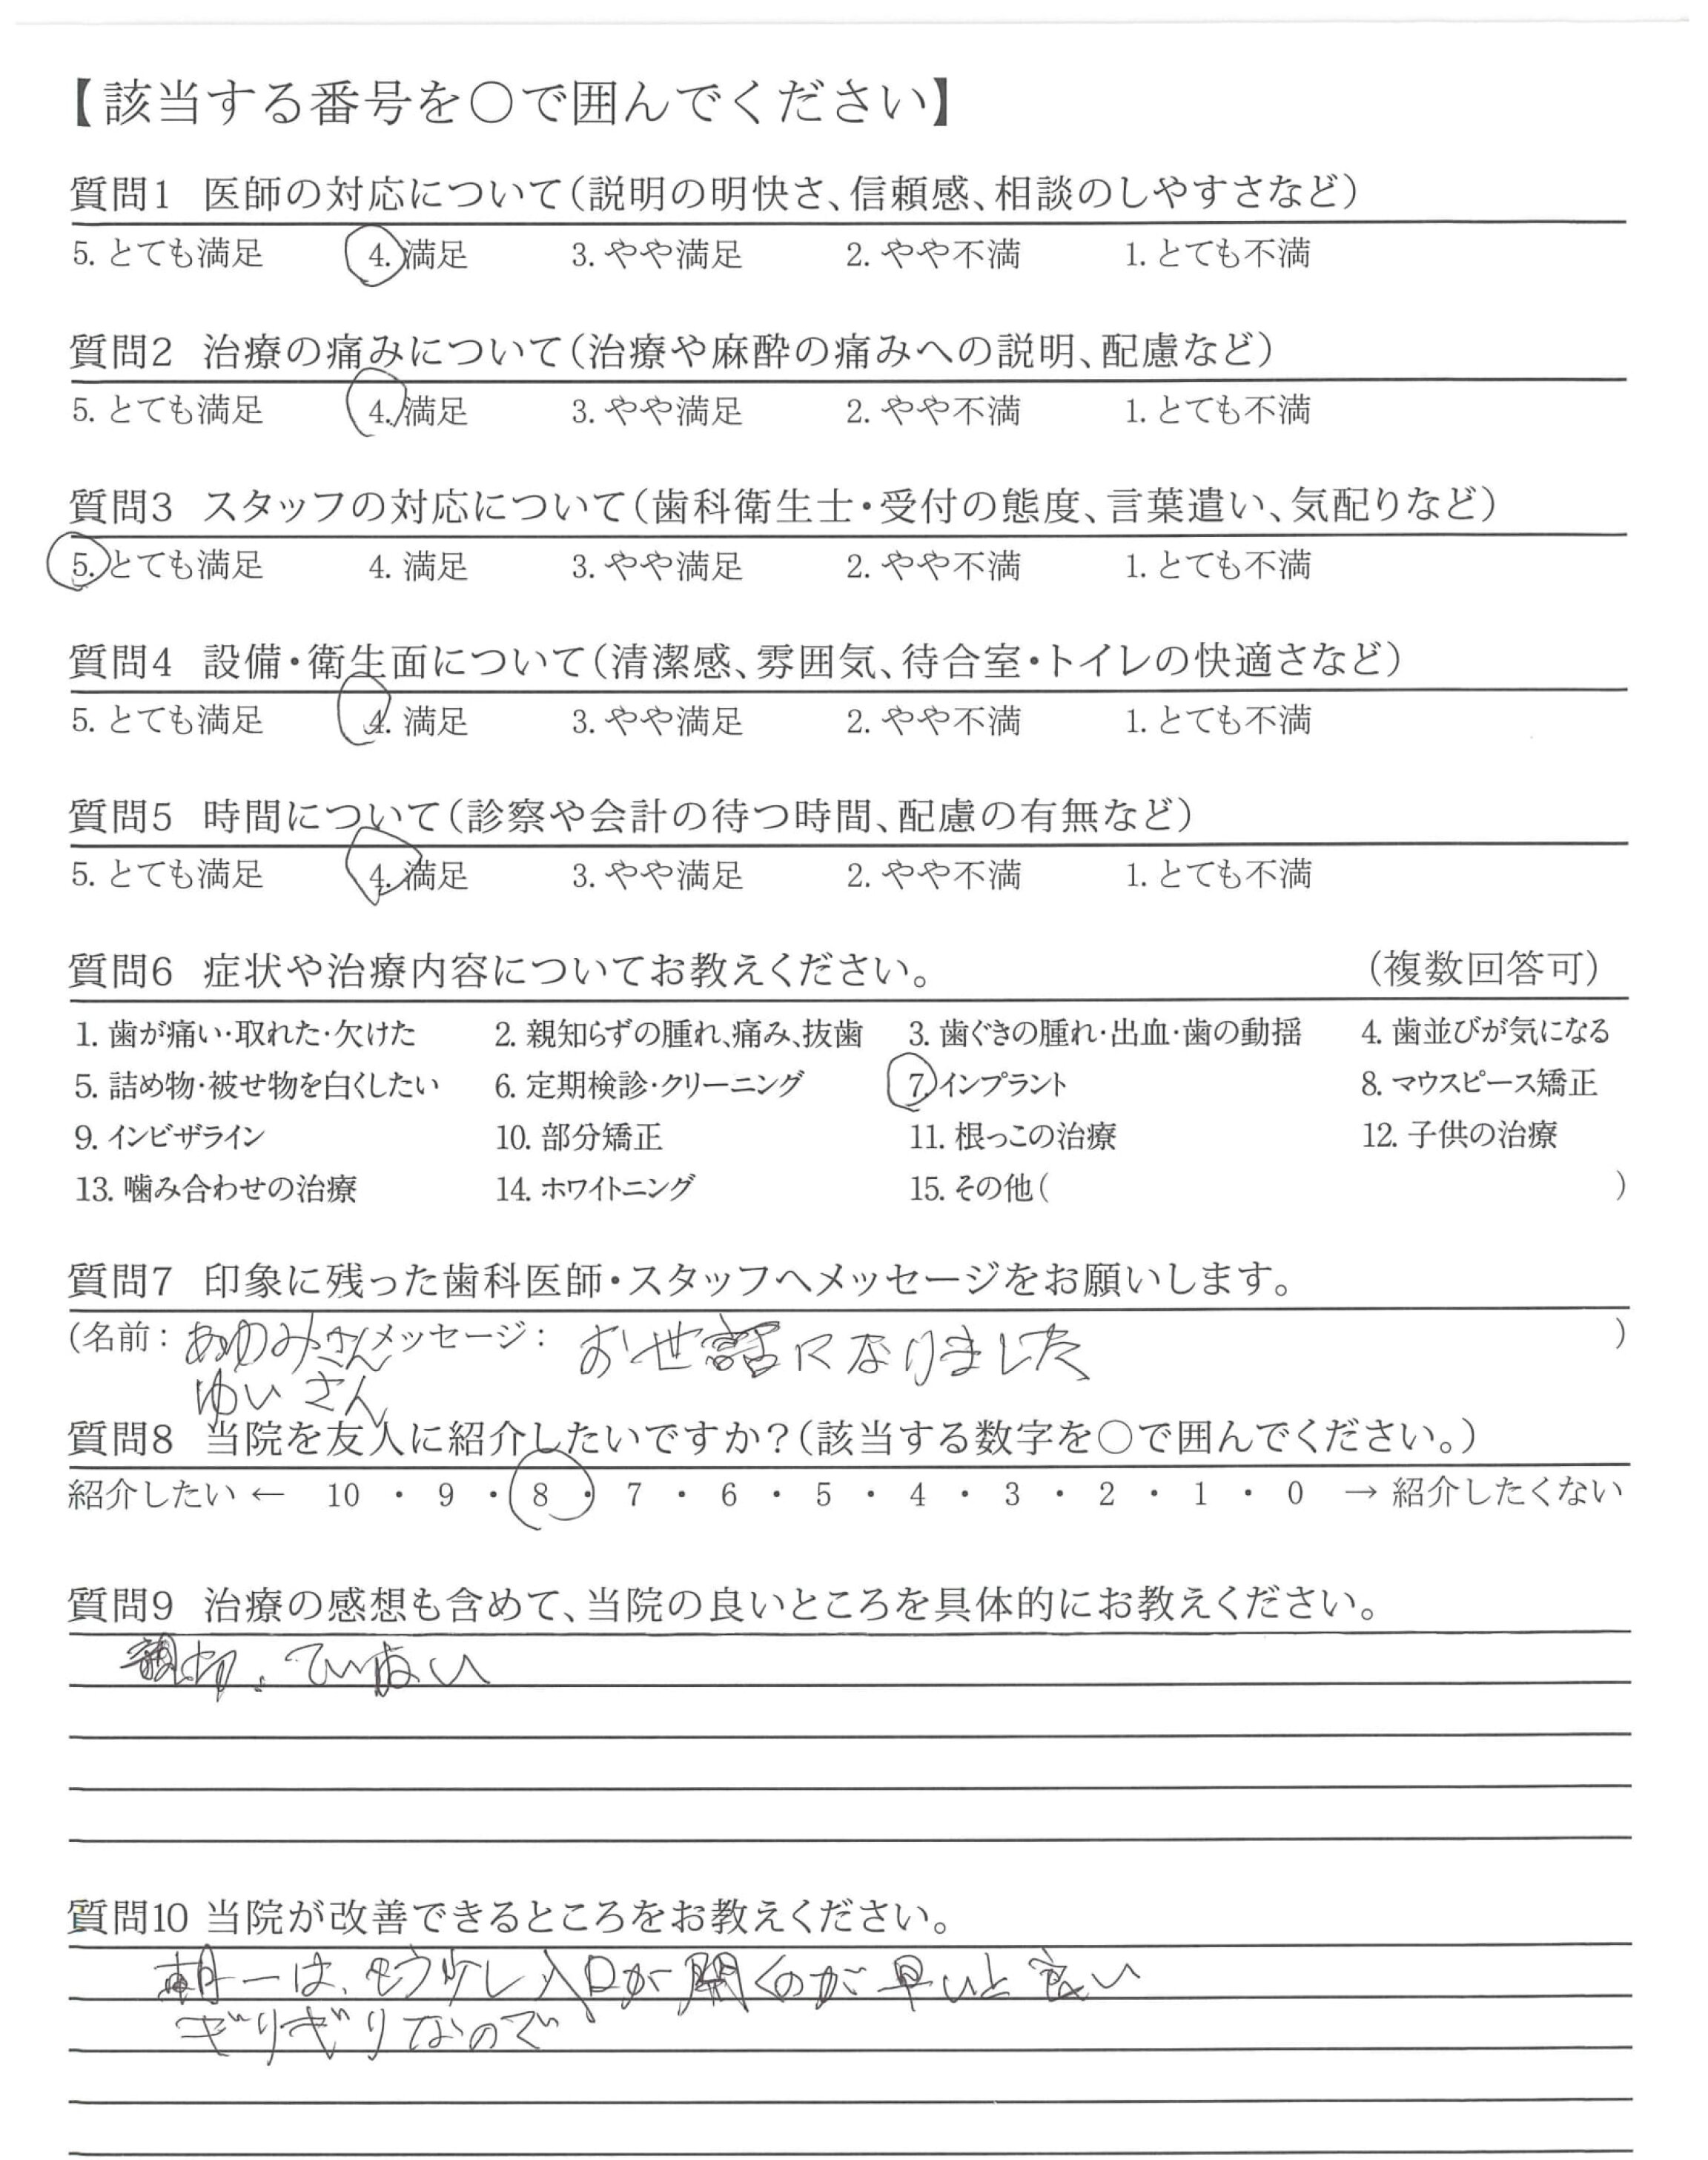 【該当する番号を○で囲んでください】
質問1 医師の対応について(説明の明快さ、信頼感、相談のしやすさなど)
5. とても満足 4. 満足 3. やや満足 2. やや不満 1. とても不満
質問2 治療の痛みについて(治療や麻酔の痛みへの説明、配慮など)
5. とても満足 4. 満足 3. やや満足 2. やや不満 1. とても不満
質問3 スタッフの対応について(歯科衛生士・受付の態度、言葉遣い、気配りなど)
5. とても満足 4. 満足 3. やや満足 2. やや不満 1. とても不満
質問4 設備・衛生面について(清潔感、雰囲気、待合室・トイレの快適さなど)
5. とても満足 4. 満足 3. やや満足 2. やや不満 1. とても不満
質問5 時間について(診察や会計の待つ時間、配慮の有無など)
5. とても満足 4. 満足 3. やや満足 2. やや不満 1. とても不満
質問6 症状や治療内容についてお教えください。 (複数回答可)
1. 歯が痛い・取れた・欠けた 2. 親知らずの腫れ、痛み、抜歯 3. 歯ぐきの腫れ・出血・歯の動揺 4. 歯並びが気になる
5. 詰め物・被せ物を白くしたい 6. 定期検診・クリーニング 7. インプラント 8. マウスピース矯正
9. インビザライン 10. 部分矯正 11. 根っこの治療 12. 子供の治療
13. 噛み合わせの治療 14. ホワイトニング 15. その他( )
質問7 印象に残った歯科医師・スタッフへメッセージをお願いします。
(名前: あゆみさん メッセージ: お世話になりました )
ゆいさん
質問8 当院を友人に紹介したいですか?(該当する数字を○で囲んでください。)
紹介したい ← 10 ・ 9 ・ 8 ・ 7 ・ 6 ・ 5 ・ 4 ・ 3 ・ 2 ・ 1 ・ 0 → 紹介したくない
質問9 治療の感想も含めて、当院の良いところを具体的にお教えください。
親切、ていねい
質問10 当院が改善できるところをお教えください。
朝一は、もう少し入口が開くのが早いと良い
ぎりぎりなので